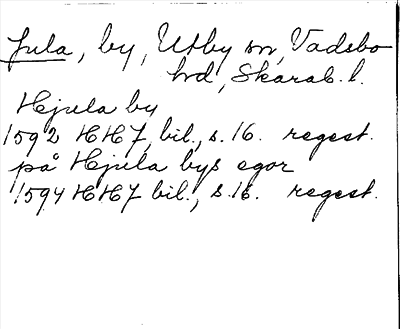 Jula, by, Utby sn, Vadsbo
hd, Skarab. l.
Hjula by
1592 HH7, bil., s. 16. regest.
på Hjula bys egor
1594 HH7 bil., s. 16. regest.